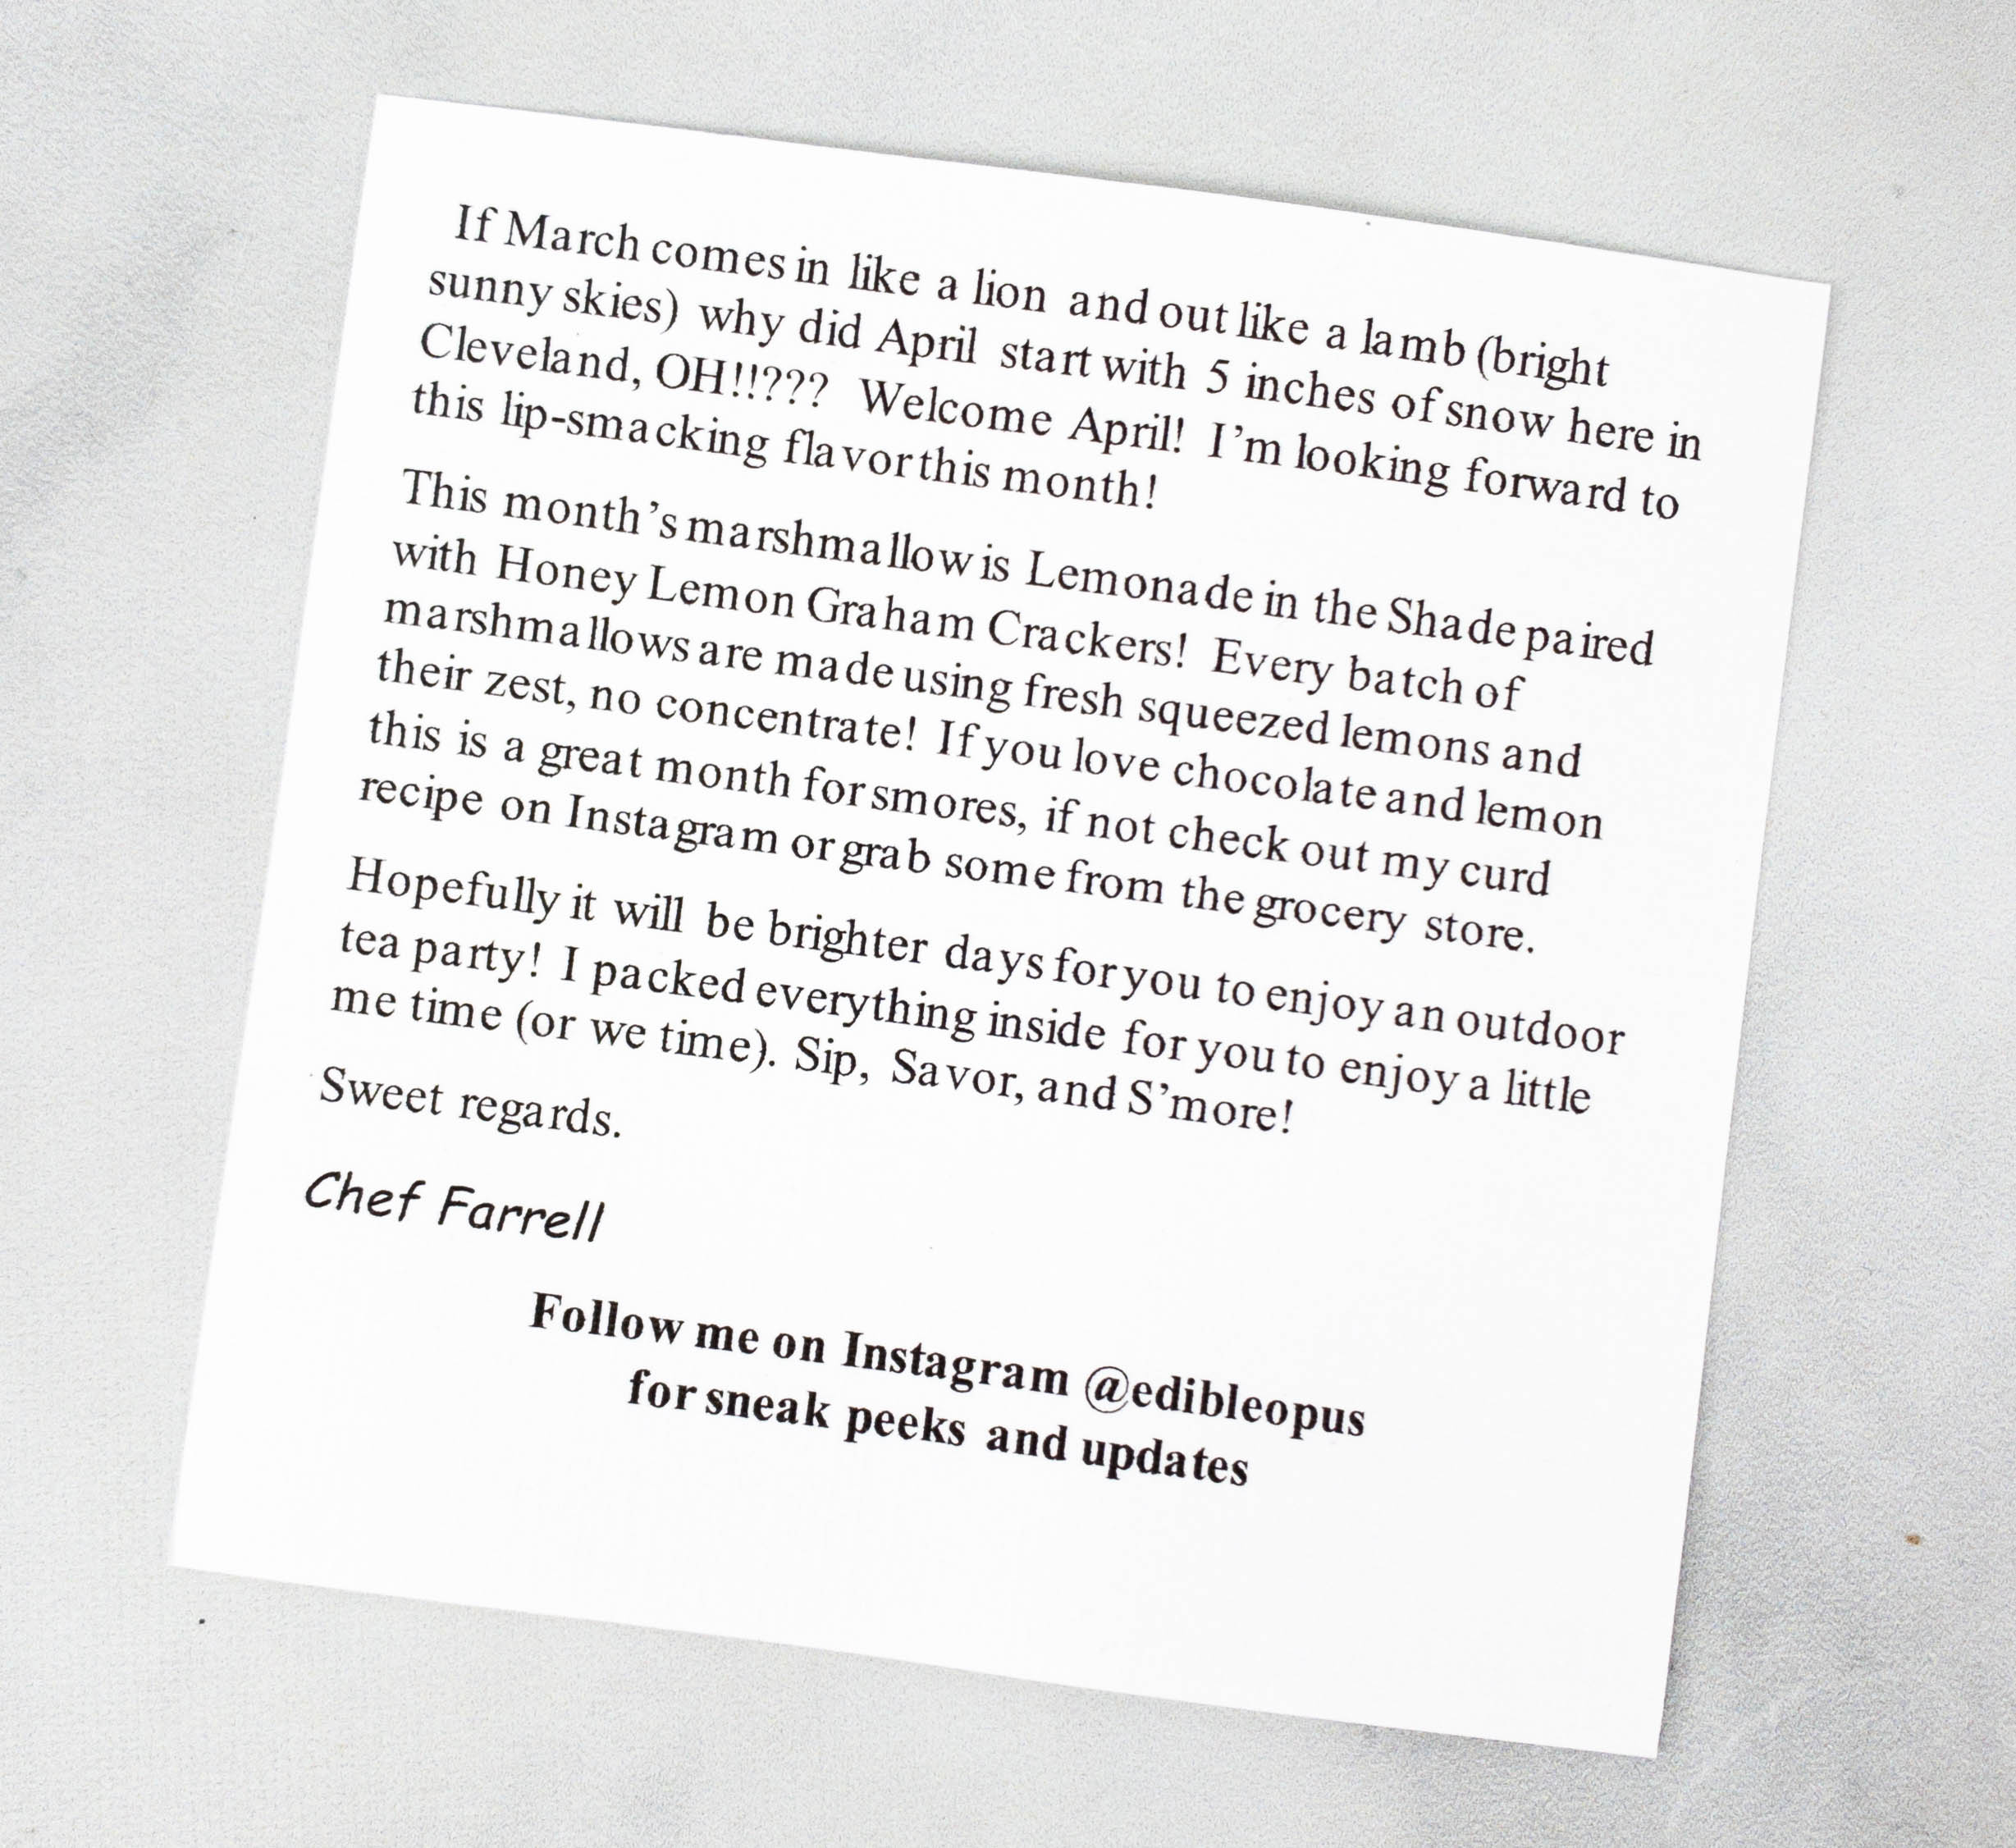 If March comes in like a lion and out like a lamb (bright
sunny skies) why did April start with 5 inches of snow here in
Cleveland, OH!!??? Welcome April! I’m looking forward to
this lip-smacking flavor this month!
This month’s marshmallow is Lemonade in the Shade paired
with Honey Lemon Graham Crackers! Every batch of
marshmallows are made using fresh squeezed lemons and
their zest, no concentrate! If you love chocolate and lemon
this is a great month for smores, if not check out my curd
recipe on Instagram or grab some from the grocery store.
Hopefully it will be brighter days for you to enjoy an outdoor
tea party! I packed everything inside for you to enjoy a little
me time (or we time). Sip, Savor, and S’more!
Sweet regards.
Chef Farrell
Follow me on Instagram @edibleopus
for sneak peeks and updates